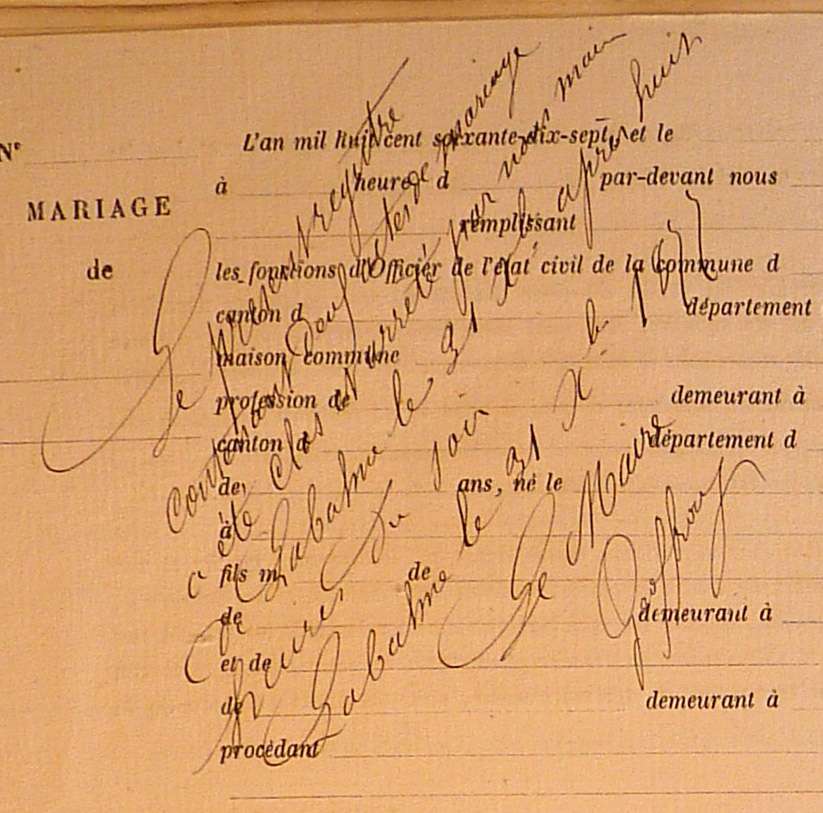 Nº
L'an mil huit cent soixante-dix-sept, et le
à heure d par-devant nous
MARIAGE
remplissant
de
les fonctions d'Officier de l'état civil de la commune d
canton d département
maison commune
profession de demeurant à
canton d département d
de ans, né le
à
fils m de
de demeurant à
et de
de demeurant à
procédant
Le présent registre
contenant douze actes de mariage
a été clos et arrêté par nous main
à Labalme le 31 Xbre après huit
heures du soir
Labalme le 31 Xbre 1877
Le Maire
Geoffroy